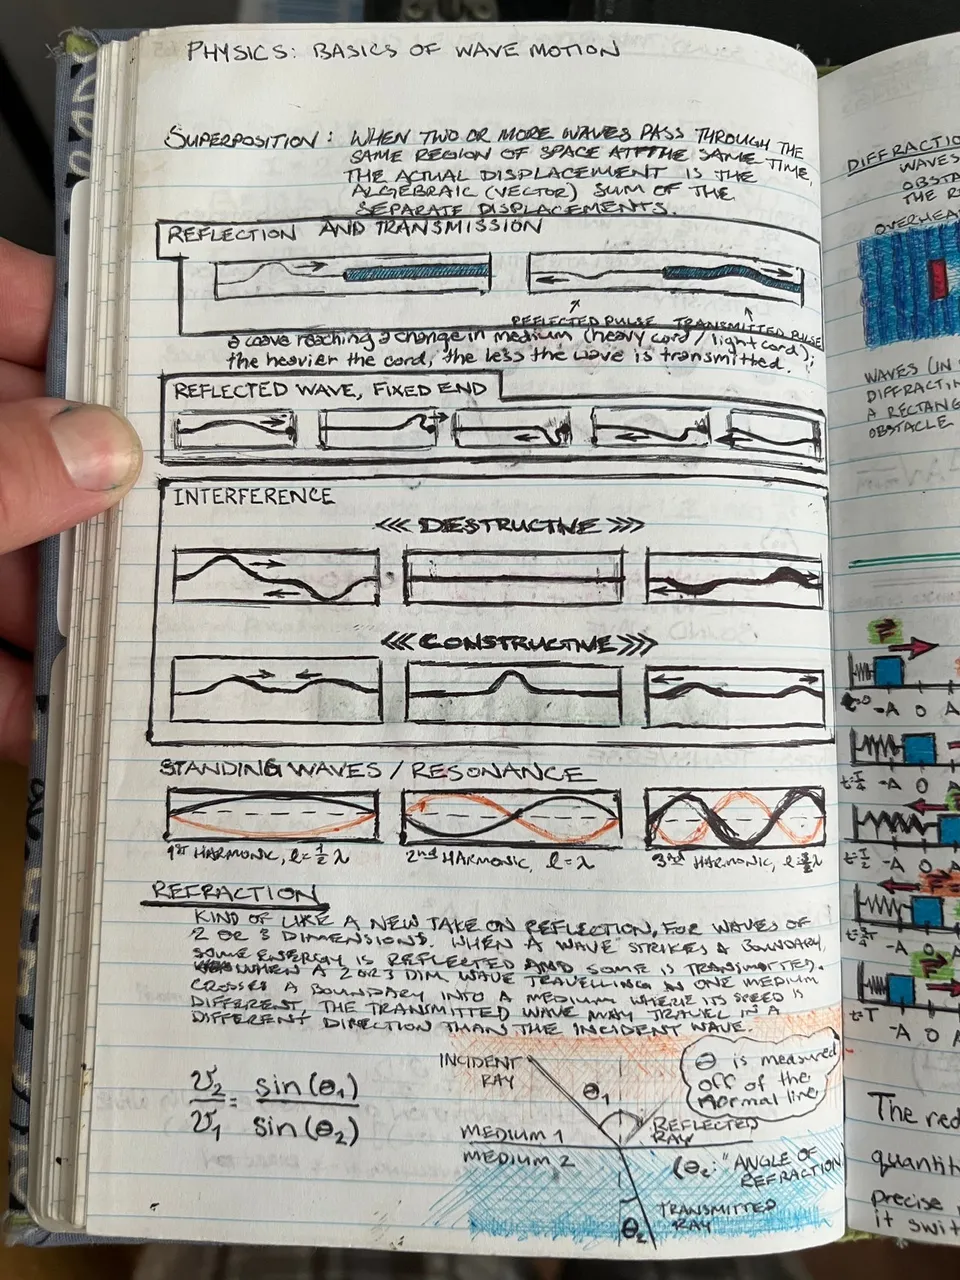 PHYSICS: BASICS OF WAVE MOTION
SUPERPOSITION: WHEN TWO OR MORE WAVES PASS THROUGH THE
SAME REGION OF SPACE AT THE SAME TIME,
THE ACTUAL DISPLACEMENT IS THE
ALGEBRAIC (VECTOR) SUM OF THE
SEPARATE DISPLACEMENTS.
REFLECTION AND TRANSMISSION
REFLECTED PULSE TRANSMITTED PULSE
a wave reaching a change in medium (heavy cord / light cord);
the heavier the cord, the less the wave is transmitted.
REFLECTED WAVE, FIXED END
INTERFERENCE
<<< DESTRUCTIVE >>>
<<< CONSTRUCTIVE >>>
STANDING WAVES / RESONANCE
1st HARMONIC, l = 1/2 λ
2nd HARMONIC, l = λ
3rd HARMONIC, l = 3/2 λ
REFRACTION
KIND OF LIKE A NEW TAKE ON REFLECTION, FOR WAVES OF
2 OR 3 DIMENSIONS. WHEN A WAVE STRIKES A BOUNDARY,
SOME ENERGY IS REFLECTED AND SOME IS TRANSMITTED.
WHEN A 2 OR 3 DIM. WAVE TRAVELLING IN ONE MEDIUM
CROSSES A BOUNDARY INTO A MEDIUM WHERE ITS SPEED IS
DIFFERENT, THE TRANSMITTED WAVE MAY TRAVEL IN A
DIFFERENT DIRECTION THAN THE INCIDENT WAVE.
v2/v1 = sin(θ1)/sin(θ2)
INCIDENT
RAY
θ1
θ is measured
off of the
normal line
REFLECTED
RAY
MEDIUM 1
MEDIUM 2
(θ2: "ANGLE OF
REFRACTION
TRANSMITTED
RAY
θ2
DIFFRACTIO
WAVES
OBSTA
THE R
OVERHEA
WAVES (IN
DIFFRACTIN
A RECTANG
OBSTACLE
t=0
-A O A
t=T/4
-A O A
t=T/2
-A O A
-A O A
t=T
-A O A
The red
quantit
Precise
it swit